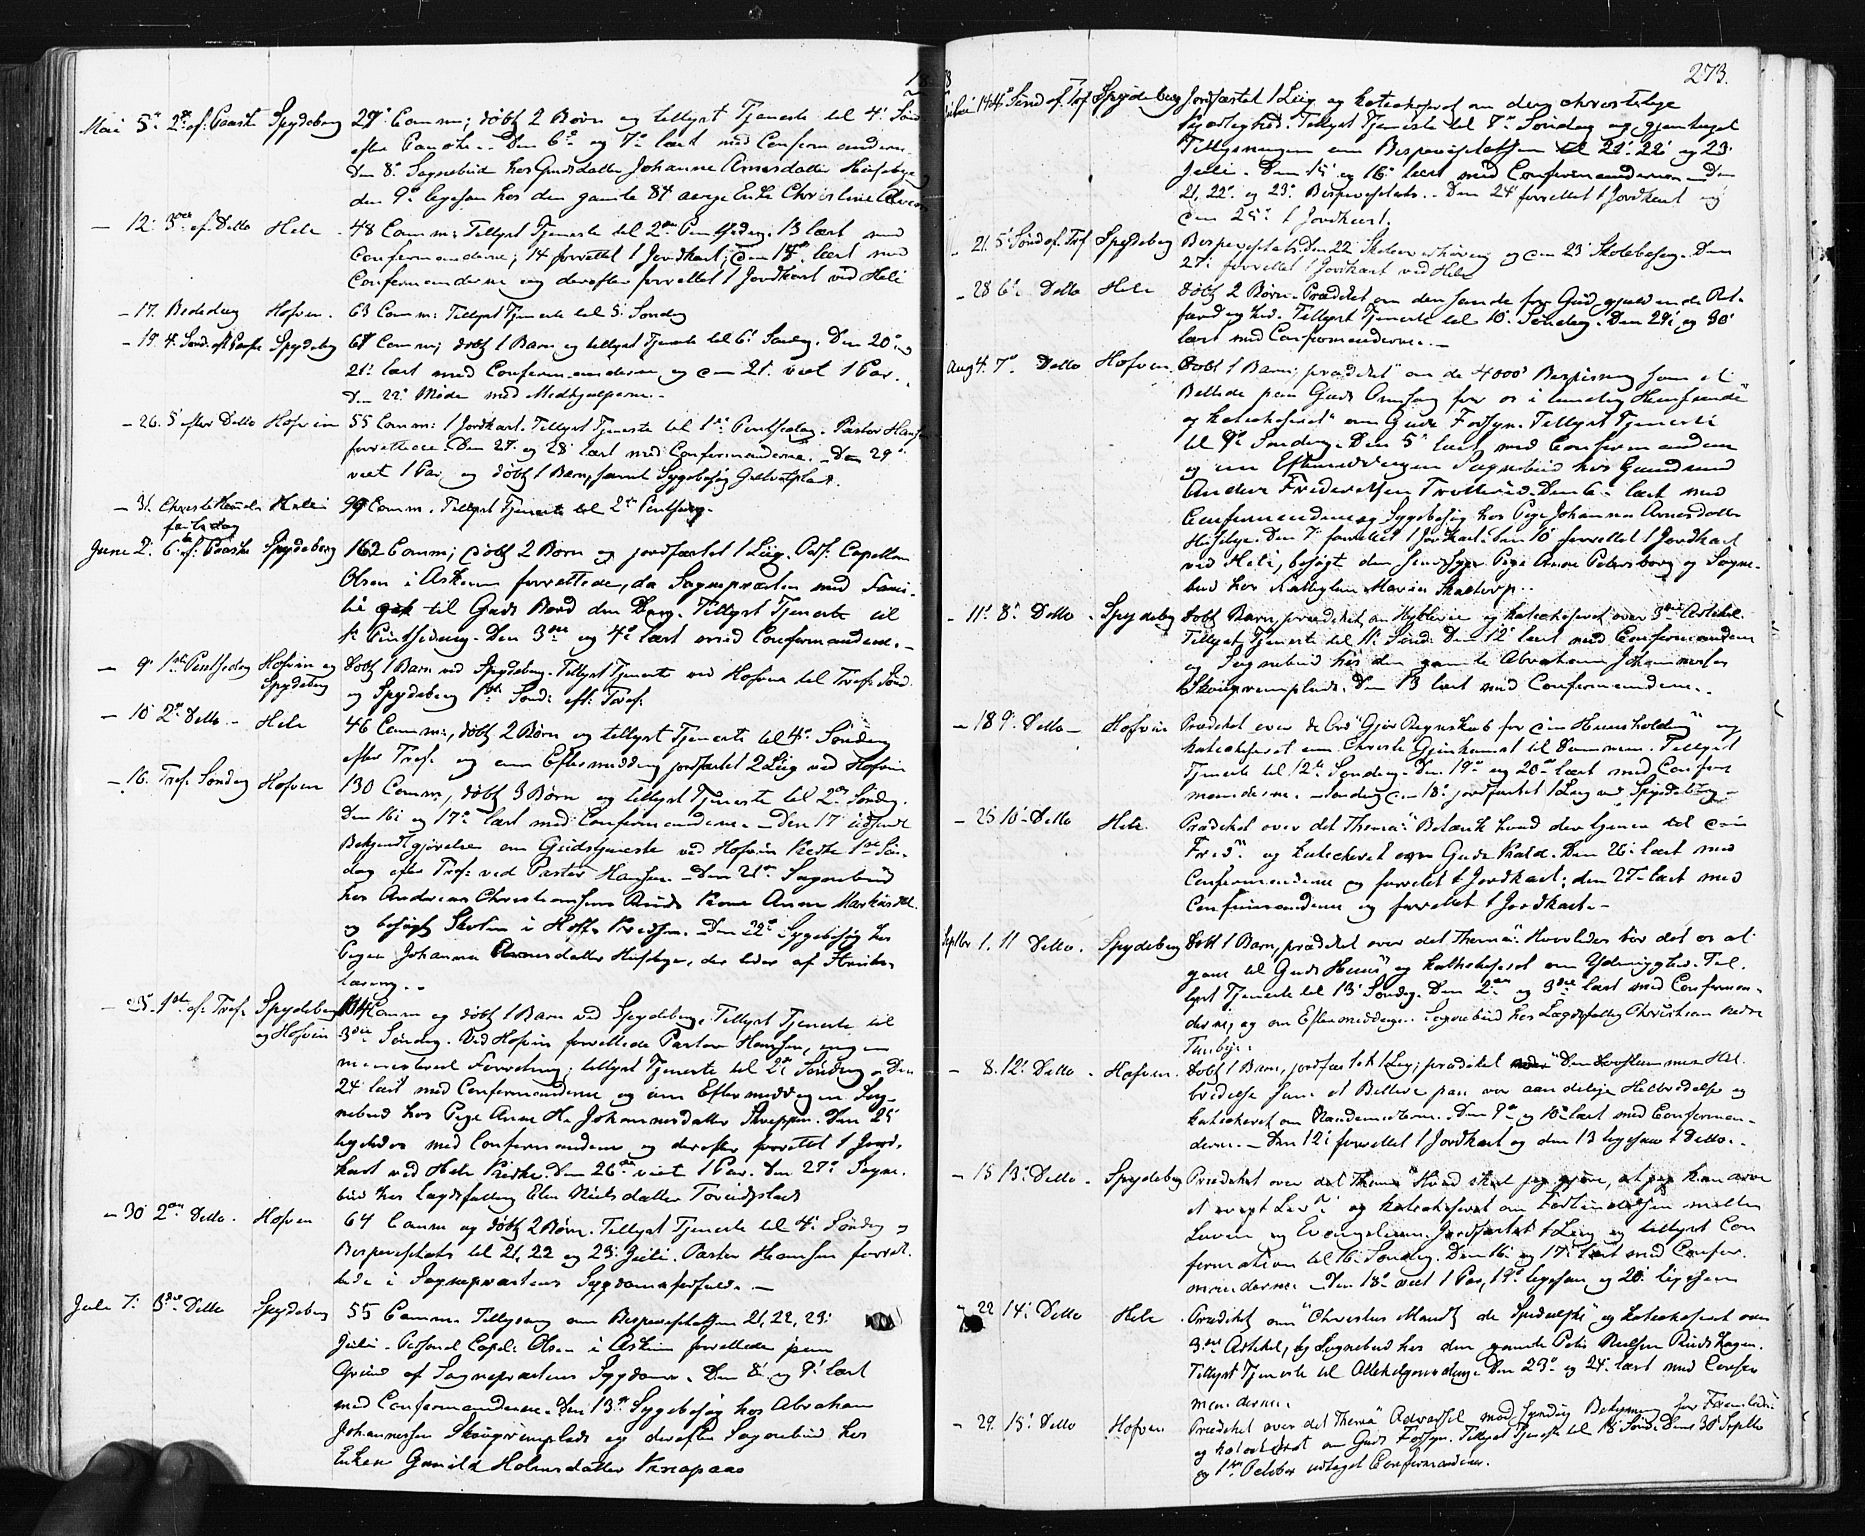 18
Mai 5te 2den ef: Paaske Spydeberg 29 Comm; døbt 2 Børn og tillyst Tjeneste til 4de Sønd
efter Paaske. Den 6te og 7de læst med Confirmanderne.
Den 8de Sognebud hos Gaardsdatter Johanne Arnesdatter
den 9de ligesaa hos den gamle 84 aarige Enke Christine
— 12. 3die ef. Ditto Heli 48 Comm: Tillyst Tjeneste til 2den Pintsedag. 13 læst med
Confirmanderne; 14 forrettet 1 Jordkast; den 15de læst med
Confirmanderne og derefter forrettet 1 Jordkast ved Heli
— 17. Bededag Hofvin. 63 Comm: Tillyst Tjeneste til 5 Søndag
— 19. 4. Sønd. eft Paaske Spydeberg 67 Comm; døbt 1 Barn og tillyst Tjeneste til 6te Søndag. Den 20de og
21de læst med Confirmanderne og den 21de viet 1 Par.
Den 22de Møde med Medhjælperne.
— 26. 5 efter Ditto Hofvin 55 Comm: 1 Jordkast. Tillyst Tjeneste til 1ste Pintsedag. Pastor Hansen
forrettede. Den 27. og 28 læst med Confirmanderne. Den 29de
viet 1 Par og døbt 1 Barn, samt Sygebesøg
— 31. Christi Himmel Heli 99 Comm. Tillyst Tjeneste til 2den Pintsedag.
fartsdag
Juni 2. 6te ef: Paaske Spydeberg 162 Comm; døbt 2 Børn og jordfæstet 1 Liig. Pers: Capellan
Olsen i Askim forrettede, da Sognepræsten med Fami-
lie gik til Guds Bord den Dag. Tillyst Tjeneste til
1ste Pintsedag. Den 3die og 4de læst med Confirmanderne.
— 9de 1ste Pintsedag Hofvin og døbt 1 Barn ved Spydeberg. Tillyst Tjeneste ved Hofvin til Tref: Sønd
Spydeberg og Spydeberg 1ste Sønd: eft: Tref:
— 10 2den Ditto Heli 46 Comm:, døbt 2 Børn og tillyst Tjeneste til 4de Søndag
efter Tref: og om Eftermiddag jordfæstet 2 Liig ved Hofvin
— 16. Tref. Søndag Hofvin 130 Comm, døbt 3 Børn og tillyst Tjeneste til 2den Søndag.
Den 16de og 17de læst med Confirmanderne. Den 17 udsendt
Bekjendtgjørelse om Gudstjeneste ved Hofvin Kirke 1ste Søn-
dag efter Tref: ved Pastor Hansen. Den 21de Sognebud
hos Andreas Christiansens Kone Anne
og besøgt Skolen i Kredsen. Den 22de Sygebesøg hos
Pigen Johanne Arnesdatter der lider af
— 23. 1ste ef: Tref: Spydeberg Comm og døbt 1 Barn ved Spydeberg. Tillyst Tjeneste til
og Hofvin 3die Søndag. Ved Hofvin forrettede Pastor Hansen, ingen
ministeriel Forretning; tillyst Tjeneste til 2den Søndag. Den
24 læst med Confirmanderne og om Eftermiddagen Sog-
nebud hos Pige Anne H. Johannesdatter Den 25
ligeledes med Confirmanderne og derefter forrettet 1 Jord-
kast ved Heli Kirke. Den 26de viet 1 Par. Den 27de Sogne-
bud hos Lægdsfattig Elen Nielsdatter
— 30 2den Ditto. Hofvin 64 Comm og døbt 2 Børn. Tillyst Tjeneste til 4de Søndag og
Bispevisitats til 21, 22 og 23 Juli. Pastor Hansen forret-
tede i Sognepræstens Sygdomsforfald. —
Juli 7. 3die Ditto Spydeberg 55 Comm. Tillysning om Bispevisitatsen 21, 22, 23
Juli. Personel Capel: Olsen i Askim forrettede paa
Grund af Sognepræstens Sygdom. Den 8de og 9de læst
med Confirmanderne. Den 13de Sygebesøg hos Abraham
Johannessen og derefter Sognebud hos
Enken Gunild Holmsdatter Knapaas
273.
Juli 14 4de Sønd ef. Tref Spydeberg Jordfæstet 1 Liig og katechiseret om den christelige
Kjærlighed. Tillyst Tjeneste til 7de Søndag og gjentaget
Tillysningen om Bispevisitatsen til 21, 22 og 23
Juli. Den 15 og 16 læst med Confirmanderne. Den
21, 22de og 23de Bispevisitats. Den 24 forrettet 1 Jordkast og
den 25de 1 Jordkast.
— 21. 5 Sønd ef. Tref Spydeberg Bispevisitats. Den 22 og den 23 Skolebesøg. Den
27de forrettet 1 Jordkast ved Heli
— 28 6te Ditto Heli døbt 2 Børn. Prædiket om den sande for Gud gjeldende Ret-
færdighed. Tillyst Tjeneste til 10. Søndag. Den 29de og 30
læst med Confirmanderne. —
Aug 4. 7de Ditto Hofvin. døbt 1 Barn; prædiket om de 4000 Bespisning som et
Billede paa Guds Omsorg for os i
og katechiseret om Guds Forsyn. Tillyst Tjeneste
til 9de Søndag. Den 5te læst med Confirmanderne
og om Eftermiddagen Sognebud hos Gaardmand
Anders Fredriksen Den 6 læst med
Confirmanderne og Sygebesøg hos Pige Johanne Arnesdatter
Den 7de forrettet 1 Jordkast. Den 10 forrettet 1 Jordkast
ved Heli, besøgt den Pige Anne og Sogne-
bud hos
— 11te 8de Ditto Spydeberg døbt Barn, prædiket om Hyklerie og katechiseret over 3die Artikel
Tillyst Tjeneste til 11te Sønd. Den 12te læst med Confirmanderne
og Sognebud hos den gamle Abraham Johannessen
Den 13 læst med Confirmanderne.
— 18 9. Ditto — Hofvin Prædiket over de Ord "Gjør Regnskab for din Huusholdning" og
katechiseret om Christi Gjenkomst til Dommen. Tillyst
Tjeneste til 12te Søndag. Den 19de og 20de læst med Confir-
manderne. — Søndag den 18de jordfæstet 1 Liig ved Spydeberg —
— 25 10de Ditto Heli. Prædiket over det Thema: "Betænk hvad der tjener til din
Fred" og katechiseret over Guds Kald. Den 26. læst med
Confirmanderne og forrettet 1 Jordkast; den 27de læst med
Confirmanderne og forrettet 1 Jordkast. —
Septbr 1. 11 Ditto. Spydeberg døbt 1 Barn, prædiket over det Thema: "Hvorledes bør det os at
gaae til Guds Huus" og katechiseret om Ydmyghed. Til-
lyst Tjeneste til 13 Søndag. Den 2den og 3die læst med Confirman-
derne, og om Eftermiddagen Sognebud hos Lægdsfattig Christian nedre
— 8. 12te Ditto — Hofvin. døbt 1 Barn, jordfæstet 1 Liig; prædiket Den Døvstummes Hel-
bredelse som et Billede paa vor aandelige Helbredelse og
katechiseret om Naademidlerne. Den 9de og 10de læst med Confirman-
derne. — Den 12te forrettet 1 Jordkast og den 13 ligesaa 1 Ditto.
— 15 13. Ditto — Spydeberg Prædiket over det Thema "Hvad skal jeg gjøre, at jeg kan arve
et evigt Liv"? og katechiseret om Forskjellen mellem
Loven og Evangeliet. Jordfæstet 1 Liig og tillyst Con
firmation til 16 Søndag. Den 16. og 17. læst med Confir-
manderne. Den 18de viet 1 Par, 19de ligesaa, og 20. ligesaa
— 22 14. Ditto Heli Prædiket om "Christus blandt de Spedalske" og katechiseret over
3die Artikel, og Sognebud hos den gamle Peder Nielsen
Tillyst Tjeneste til Allehelgensdag. Den 23de og 24. læst med Confir
manderne.
— 29. 15. Ditto Hofvin Prædiket over det Thema "Advarsel mod syndig Bekymring for
og katechiseret om Guds Forsyn. Tillyst Tjeneste til 18 Sønd. Den 30 Septbr
og 1ste October Confirmanderne.